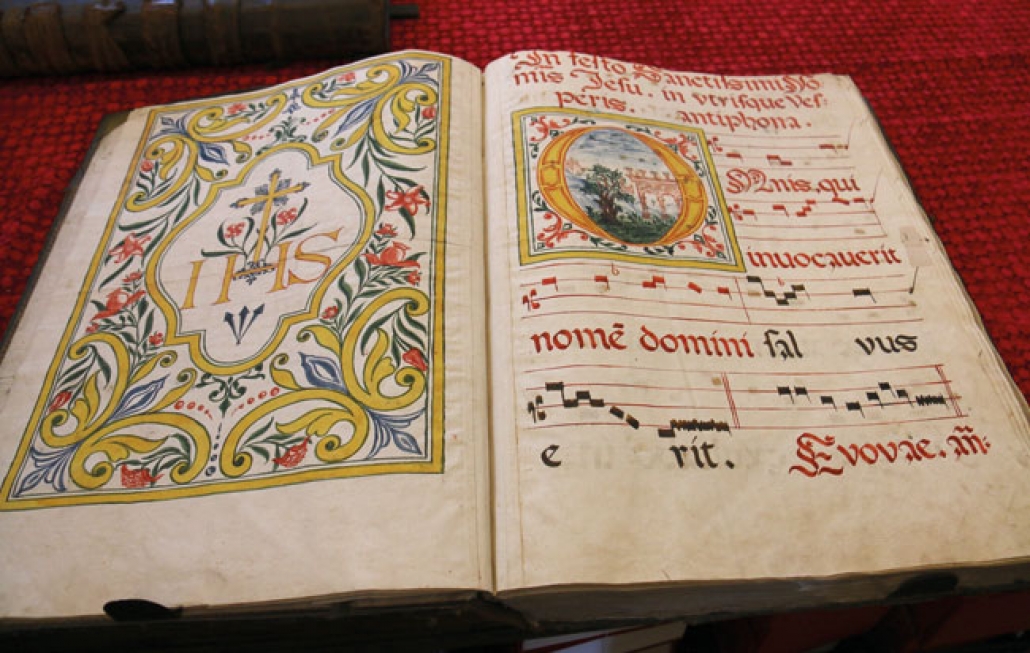 IHS
In festo Sanctissimi No
mis Jesu. in vtrisque Ves
peris. antiphona.
OMnis, qui
inuocauerit
nomē domini sal vus
e rit. Evovae. añ: